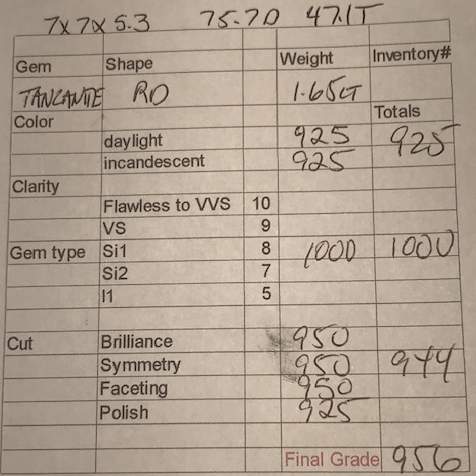 7x7x5.3 75.7D 47.1T
Gem Shape Weight Inventory#
TANZANITE RD 1.65CT
Color Totals
daylight 925 925
incandescent 925
Clarity
Flawless to VVS 10
VS 9
Gem type Si1 8 1000 1000
Si2 7
I1 5
Cut Brilliance 950
Symmetry 950 944
Faceting 950
Polish 925
Final Grade 956